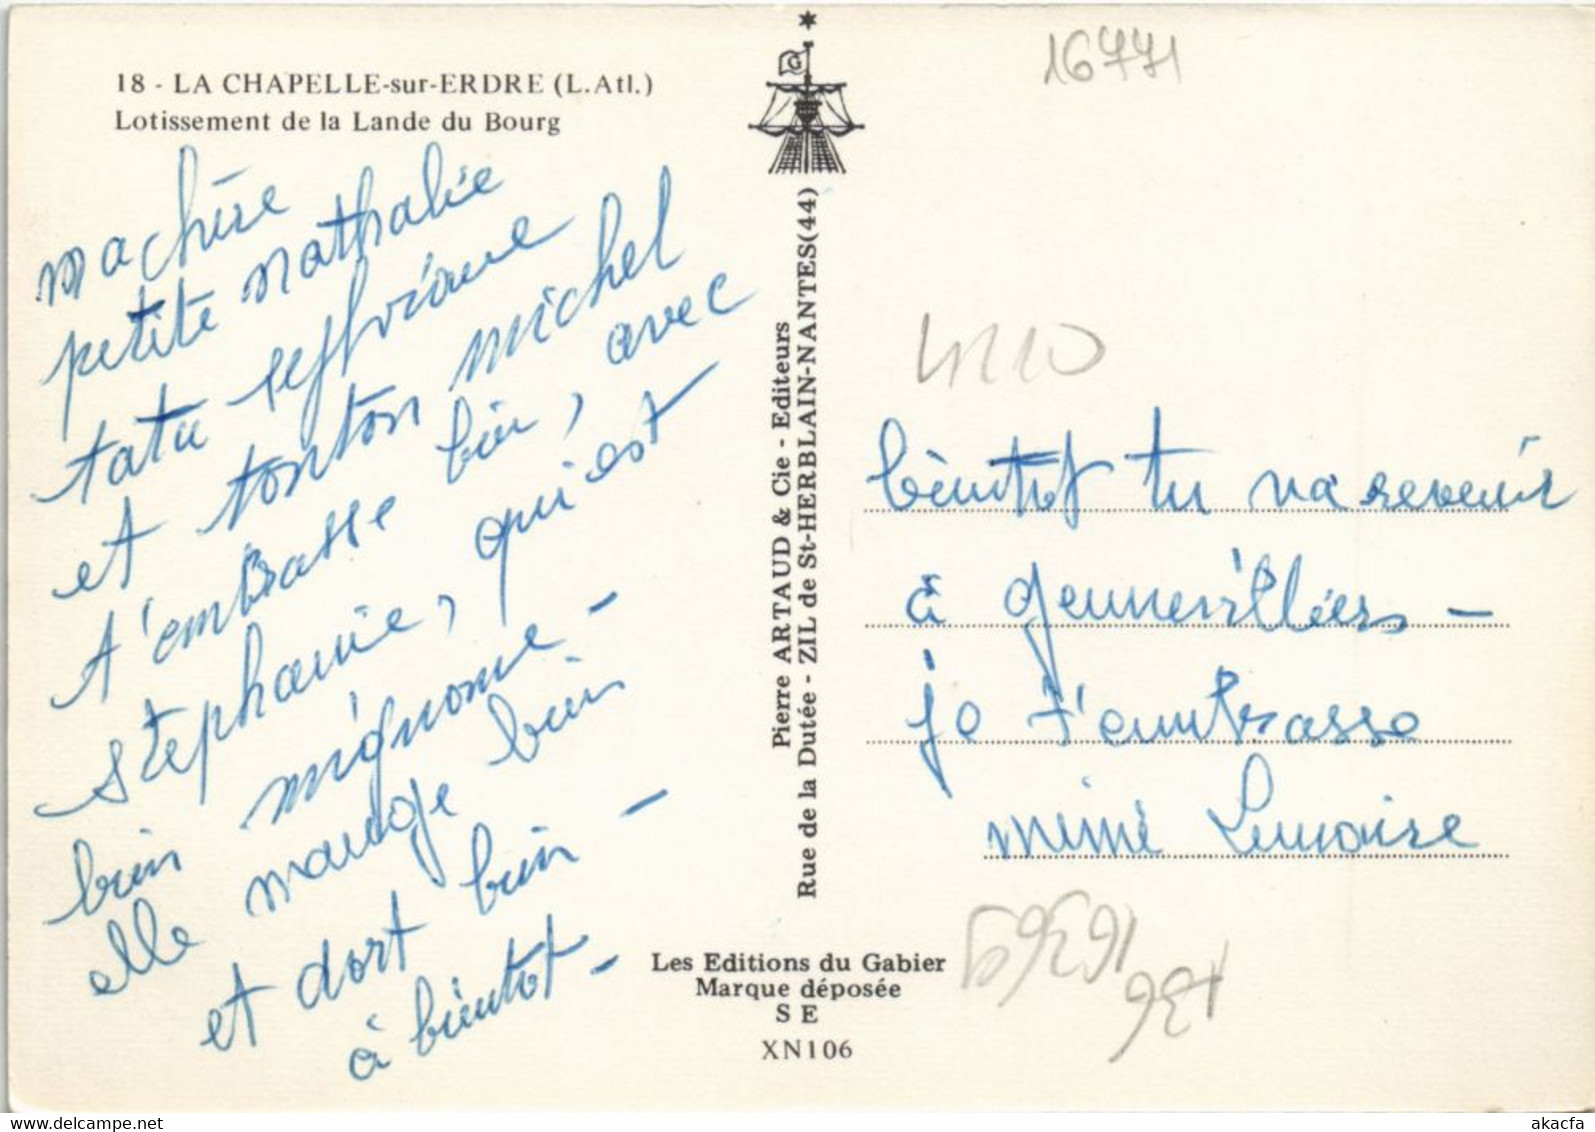 18 - LA CHAPELLE-sur-ERDRE (L.Atl.)
Lotissement de la Lande du Bourg
ma chère
petite nathalie
tata sylviane
et tonton michel
t'embrasse bien, avec
stephanie, qui est
bien mignonne -
elle mange bien
et dort bien -
à bientot -
Pierre ARTAUD & Cie - Editeurs
Rue de la Dutée - ZIL de St-HERBLAIN-NANTES(44)
G
Les Editions du Gabier
Marque déposée
S E
XN106
16771
bientot tu va revenir
à gennevilliers -
je t'embrasse
mimi Lemaire
www.delcampe.net
akacfa